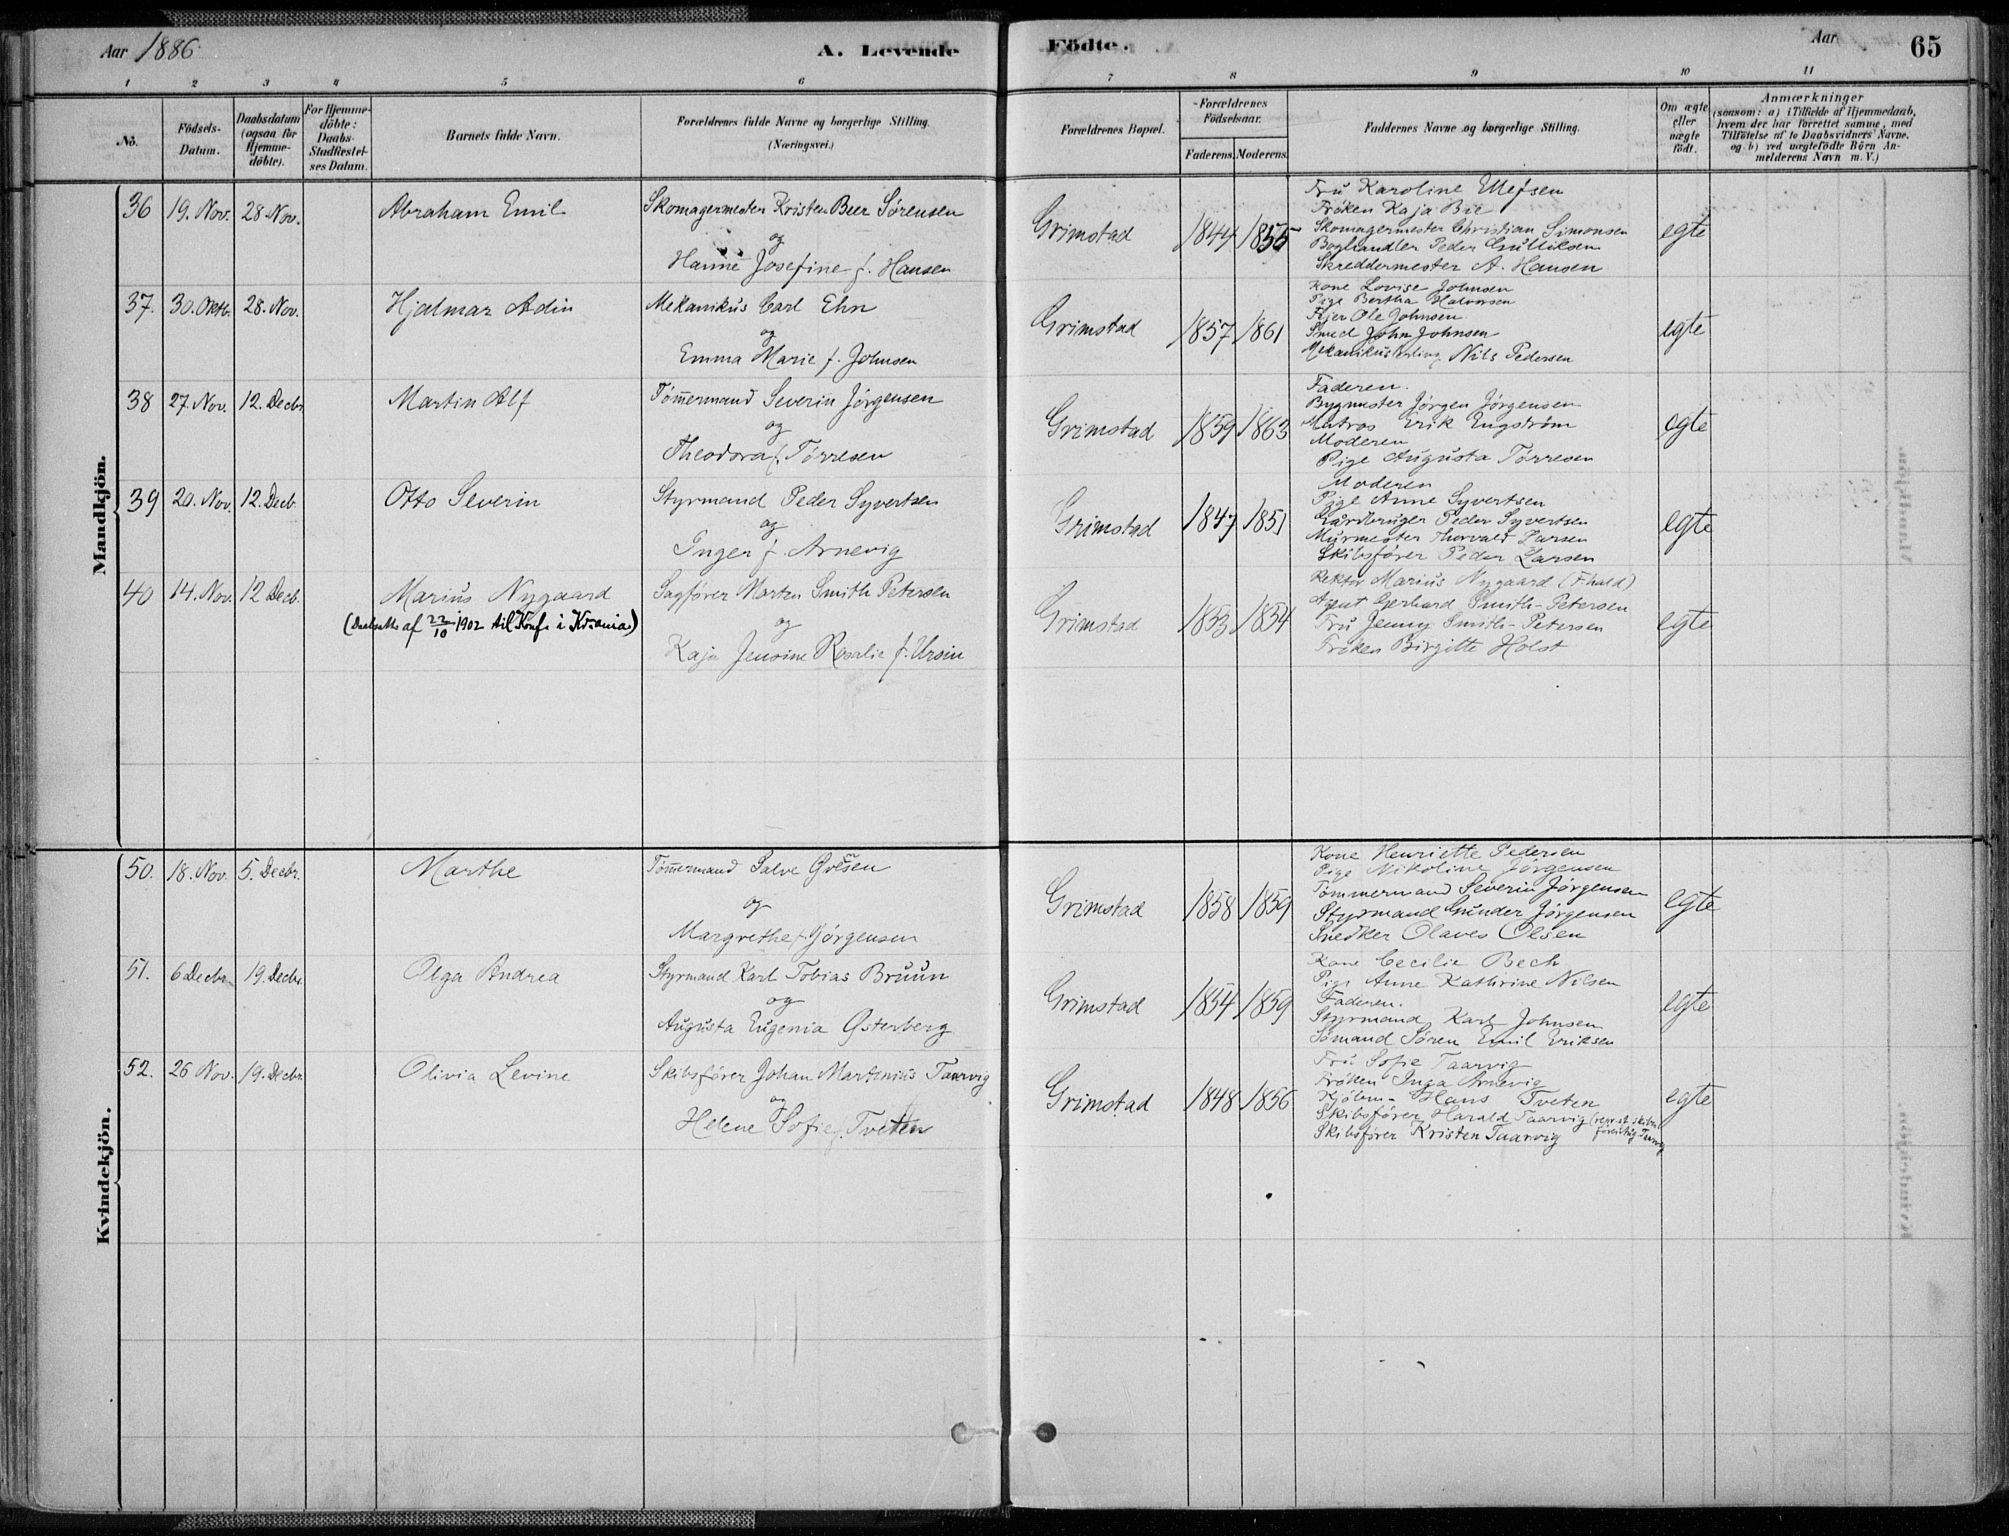 Aar 1886
A. Levende Födte.
Aar
65
1 2 3 4 5 6 7 8 9 10 11
No.
Födsels-
Datum.
Daabsdatum
(ogsaa for
Hjemme-
döbte).
For Hjemme-
döbte:
Daabs-
Stadfæstel-
ses Datum.
Barnets fulde Navn.
Forældrenes fulde Navne og borgerlige Stilling.
(Næringsvei.)
Forældrenes Bopæl.
Forældrenes
Födselsaar.
Faderens. Moderens.
Faddernes Navne og borgerlige Stilling.
Om ægte
eller
uægte
födt.
Anmærkninger
(saasom: a) i Tilfælde af Hjemmedaab,
hvem der har forrettet samme, med
Tilföielse af to Daabsvidners Navne,
og b) ved uægtefödte Börn An-
melderens Navn m. V.)
Mandkjön.
36 19. Nov. 28 Nov. Abraham Emil
Skomagermester Kristen Beer Sörensen
og
Hanne Josefine f. Hansen
Grimstad 1844 1855
Fru Karoline Ellefsen
Fröken Kaja Bie
Skomagermester Christian Simonsen
Boghandler Peder Gulliksen
Skreddermester A. Hansen
egte
37. 30. Oktb. 28. Nov. Hjalmar Adin
Mekanikus Carl Ehn
og
Emma Marie f. Johnsen
Grimstad 1857 1861
Kone Lovise Johnsen
Pige Bertha Halvorsen
Ole Johnsen
Smed John Johnsen
Nils Pedersen
egte
38 27. Nov. 12. Decbr Martin Alf
Tömmermand Severin Jörgensen
og
Theodora f. Törresen
Grimstad 1859 1863
Faderen.
Bygmester Jörgen Jörgensen
Matros Erik Engström
Moderen
Pige Augusta Törresen
egte
39 20. Nov. 12. Decb. Otto Severin
Styrmand Peder Syvertsen
og
Inger f. Arnevig
Grimstad 1847 1851
Moderen
Pige Anne Syvertsen
Gårdbruger Peder Syvertsen
Murmester Thorvald Larsen
Skibsförer Peder Larsen
egte
40 14. Nov. 12 Decb. Marius Nygaard
(Daabsatt. af 22/10 1902 til Konf. i Kr.ania)
Sagförer Morten Smith Petersen
og
Kaja Jensine Rosalie f. Ursin
Grimstad 1853 1854
Rektor Marius Nygaard (Fhald)
Agent Gerhard Smith-Petersen
Fru Jenny Smith-Petersen
Fröken Birgitte Holst
egte
Kvindekjön.
50. 18. Nov. 5. Decbr. Marthe
Tömmermand Salve Olsen
og
Margrethe f. Jörgensen
Grimstad 1858 1859
Kone Henriette Pedersen
Pige Nikoline Jörgensen
Tömmermand Severin Jörgensen
Styrmand Gunder Jörgensen
Snedker Olaves Olsen
egte
51. 6 Decbr. 19. Decbr. Olga Andrea
Styrmand Karl Tobias Bruun
og
Augusta Eugenia Østerberg
Grimstad 1854 1859
Kone Cecilie Bech
Pige Anne Kathrine Nilsen
Faderen.
Styrmand Karl Johnsen
Sömand Sören Emil Eriksen
egte
52. 26 Nov. 19. Decbr. Olivia Levine
Skibsförer Johan Martinius Taarvig
og
Helene Sofie f. Tveten
Grimstad 1848 1856
Fru Sofie Taarvig
Fröken Inga Arnevig
Kjöbm. Hans Tveten
Skibsförer Harald Taarvig
Skibsförer Kristen Taarvig
egte